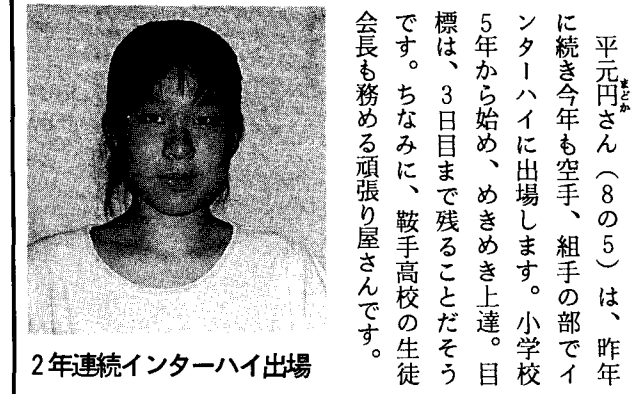 平元円さん(8の5)は、昨年
まどか
に続き今年も空手、組手の部でイ
ンターハイに出場します。小学校
5年から始め、めきめき上達。目
標は、3日目まで残ることだそう
です。ちなみに、鞍手高校の生徒
会長も務める頑張り屋さんです。
2年連続インターハイ出場